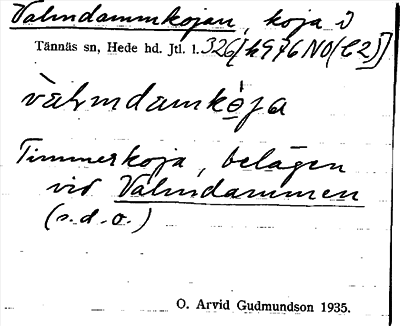 Valmdammkojan, koja i
Tännäs sn, Hede hd. Jtl. l. 326[h976NO(C2)]
vàlmdamkòja
Timmerkoja, belägen
vid Valmdammen
(s.d.o.)
O. Arvid Gudmundson 1935.